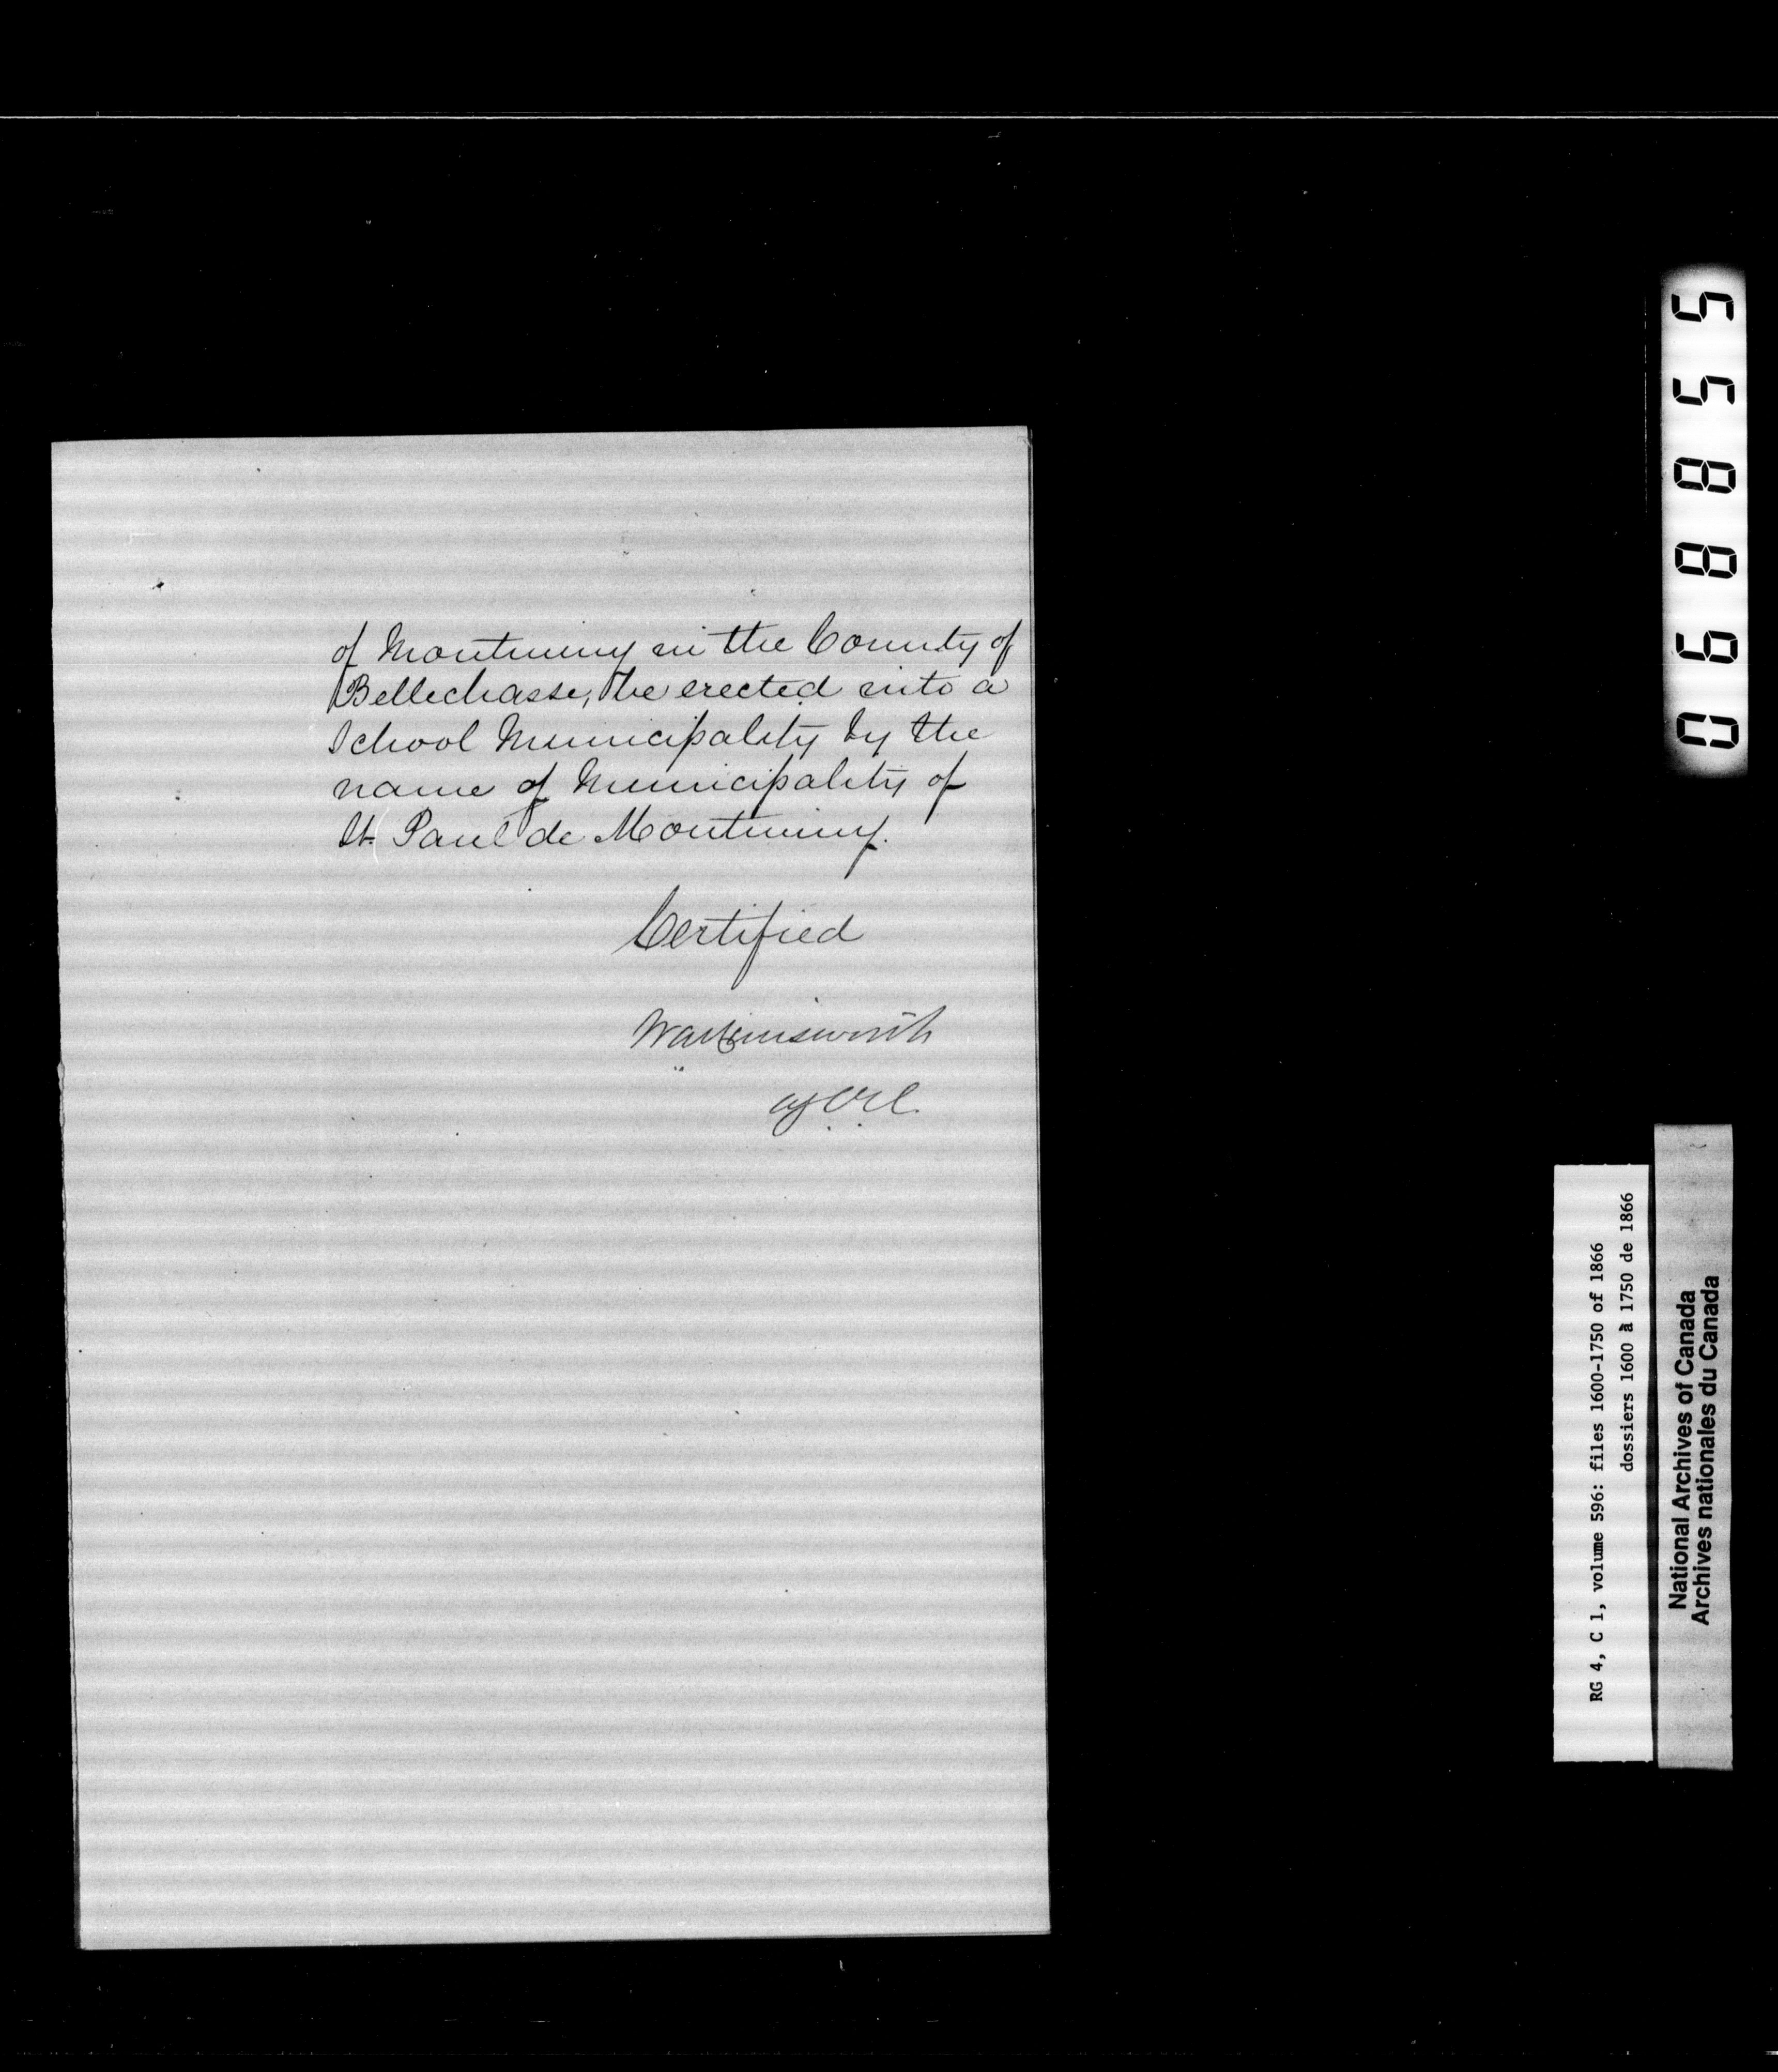 of Montminy in the County of
Bellechasse, be erected into a
School Municipality by the
name of Municipality of
St. Paul de Montminy.
Certified
WA Himsworth
068855
RG 4, C 1, volume 596: files 1600-1750 of 1866
dossiers 1600 à 1750 de 1866
National Archives of Canada
Archives nationales du Canada